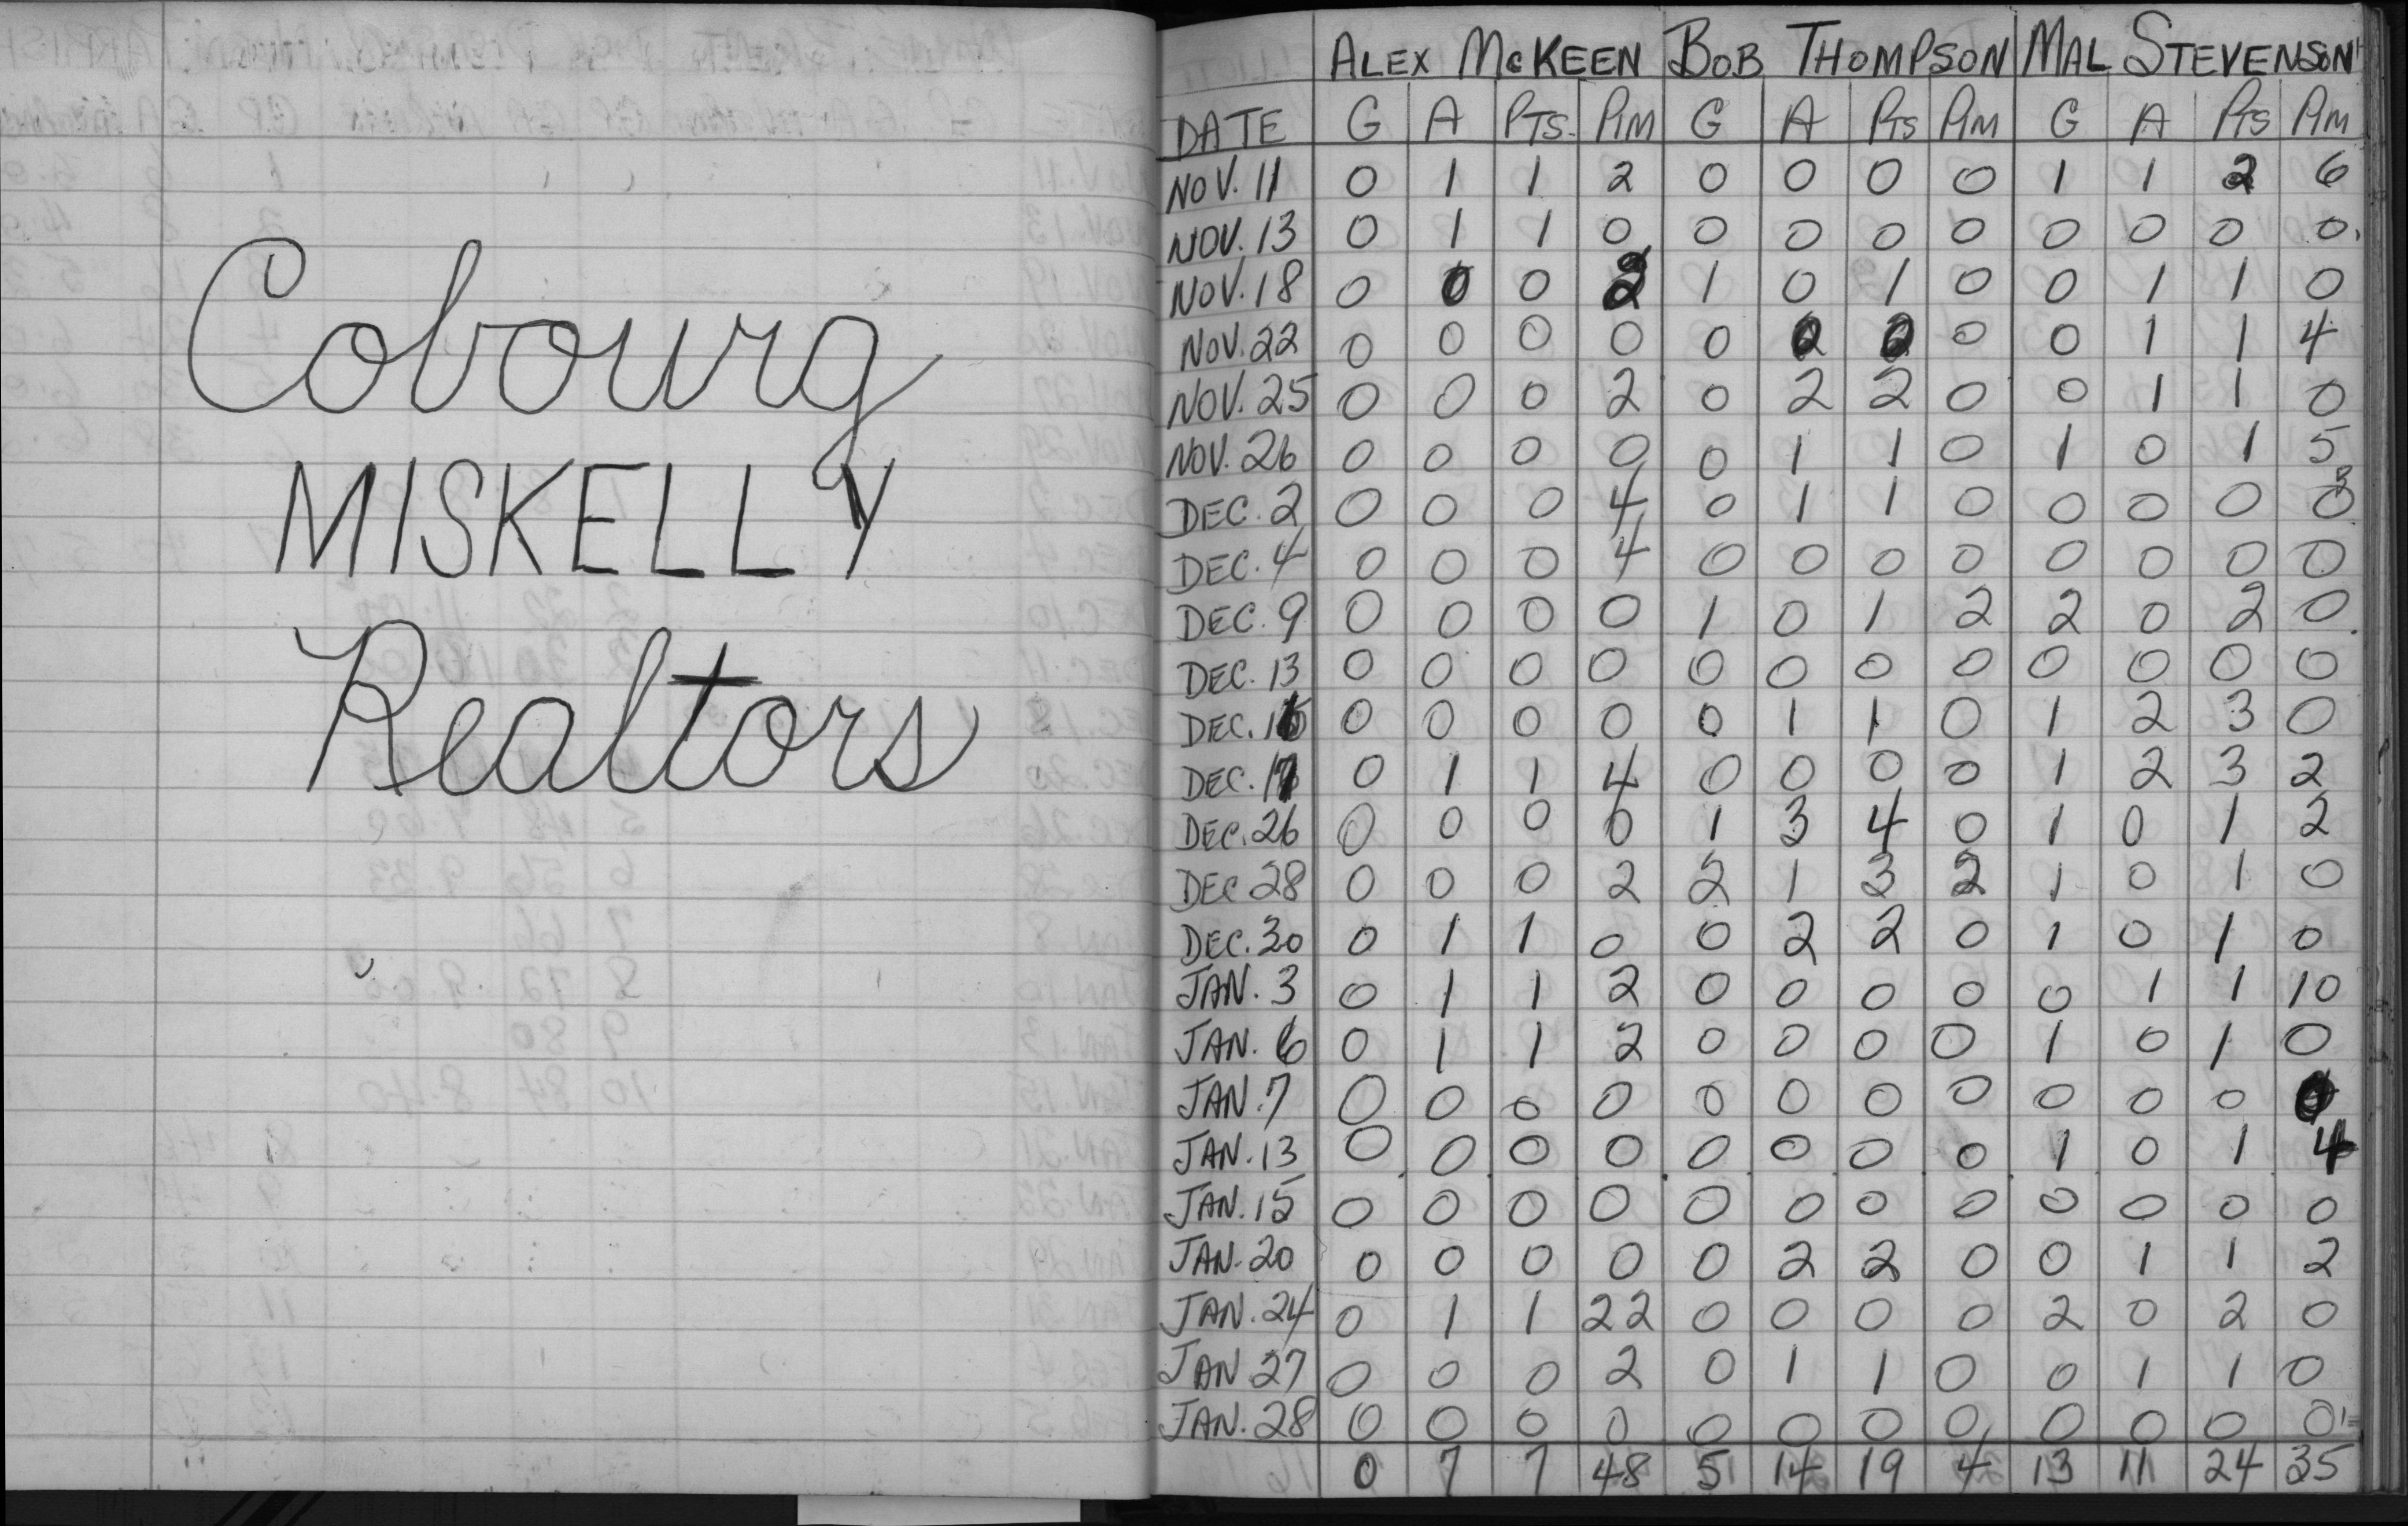 Cobourg
MISKELLY
Realtors
ALEX McKEEN BOB THOMPSON MAL STEVENSON
DATE G A PTS. PIM G A PTS PIM G A PTS PIM
NOV. 11 0 1 1 2 0 0 0 0 1 1 2 6
NOV. 13 0 1 1 0 0 0 0 0 0 0 0 0
NOV. 18 0 0 0 2 1 0 1 0 0 1 1 0
NOV. 22 0 0 0 0 0 0 0 0 1 1 4
NOV. 25 0 0 0 2 0 2 2 0 0 1 1 0
NOV. 26 0 0 0 0 0 1 1 0 1 0 1 5
DEC. 2 0 0 0 4 0 1 1 0 0 0 0 0
DEC. 4 0 0 0 4 0 0 0 0 0 0 0 0
DEC. 9 0 0 0 0 1 0 1 2 2 0 2 0
DEC. 13 0 0 0 0 0 0 0 0 0 0 0 0
DEC. 16 0 0 0 0 0 1 1 0 1 2 3 0
DEC. 17 0 1 1 4 0 0 0 0 1 2 3 2
DEC. 26 0 0 0 0 1 3 4 0 1 0 1 2
DEC 28 0 0 0 2 2 1 3 2 1 0 1 0
DEC. 30 0 1 1 0 0 2 2 0 1 0 1 0
JAN. 3 0 1 1 2 0 0 0 0 0 1 1 10
JAN. 6 0 1 1 2 0 0 0 0 1 0 1 0
JAN. 7 0 0 0 0 0 0 0 0 0 0 0 0
JAN. 13 0 0 0 0 0 0 0 0 1 0 1 4
JAN. 15 0 0 0 0 0 0 0 0 0 0 0 0
JAN. 20 0 0 0 0 0 2 2 0 0 1 1 2
JAN. 24 0 1 1 22 0 0 0 0 2 0 2 0
JAN 27 0 0 0 2 0 1 1 0 0 1 1 0
JAN. 28 0 0 0 0 0 0 0 0 0 0 0 0
0 7 7 48 5 14 19 4 13 11 24 35